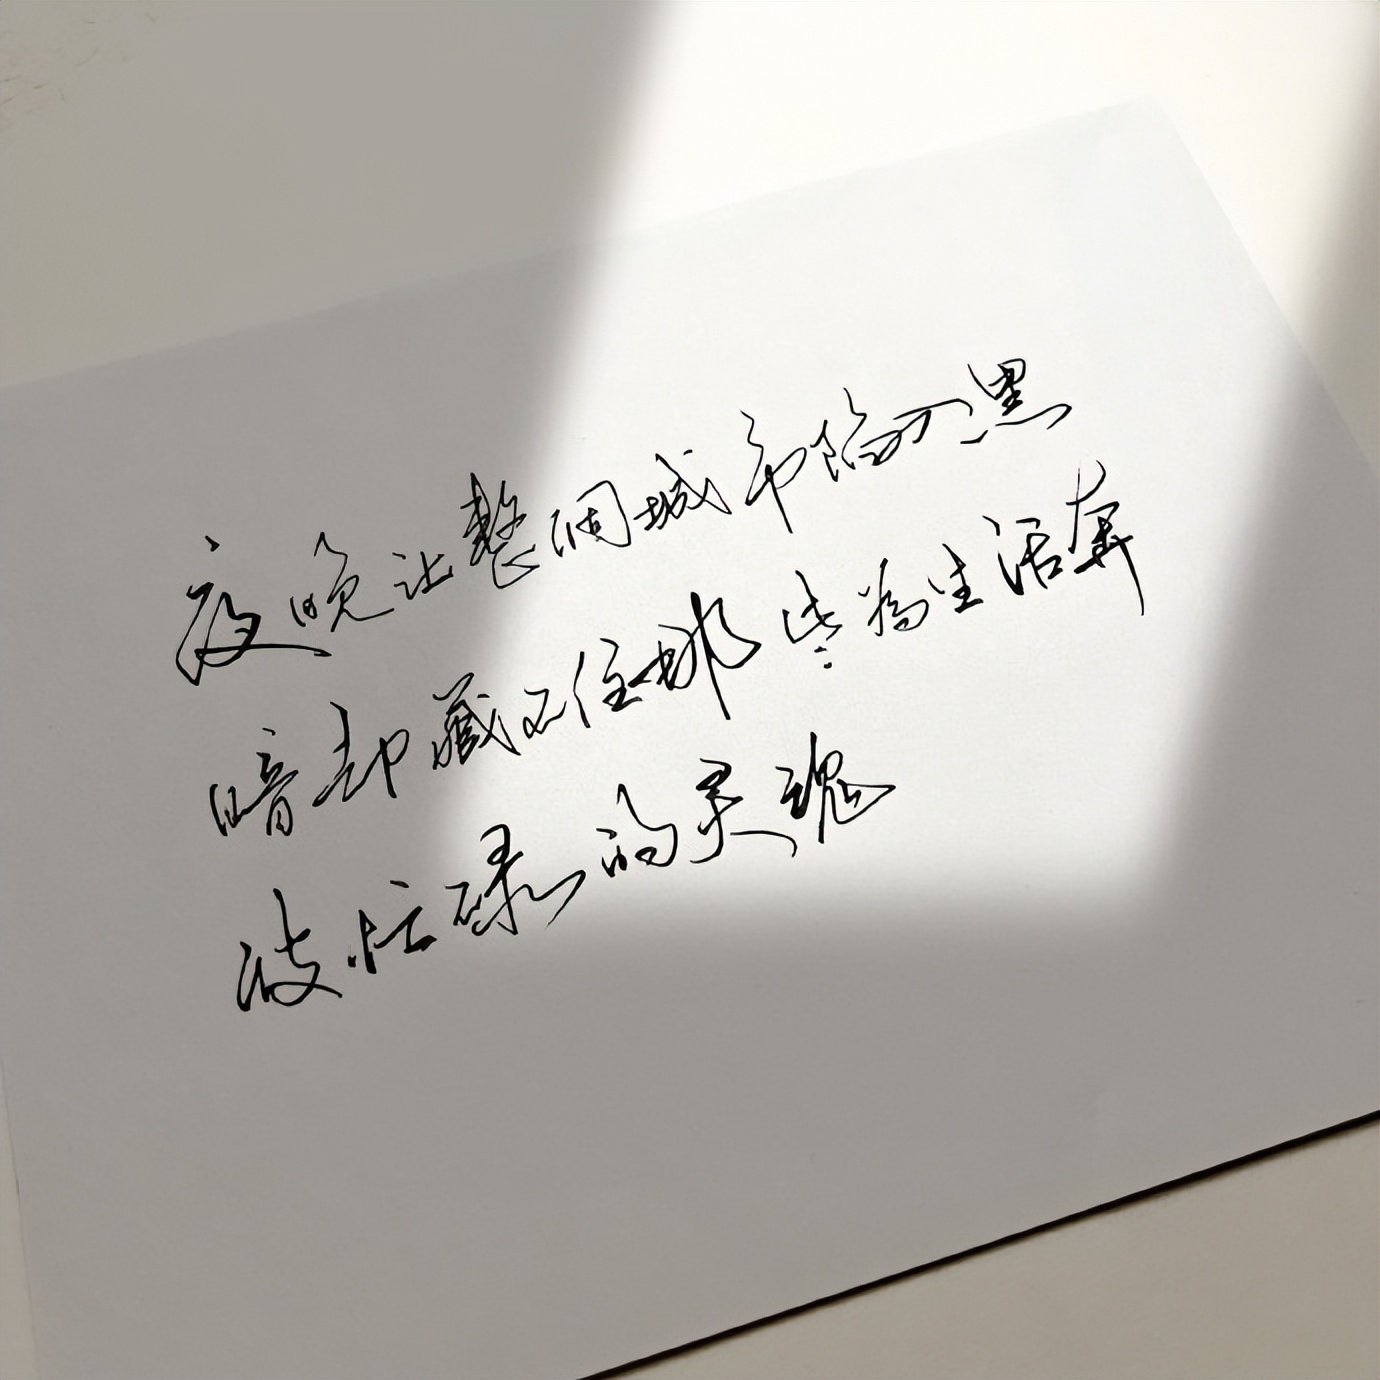 夜晚让整個城市陷入黑
暗却藏不住那些為生活奔
波忙碌的灵魂